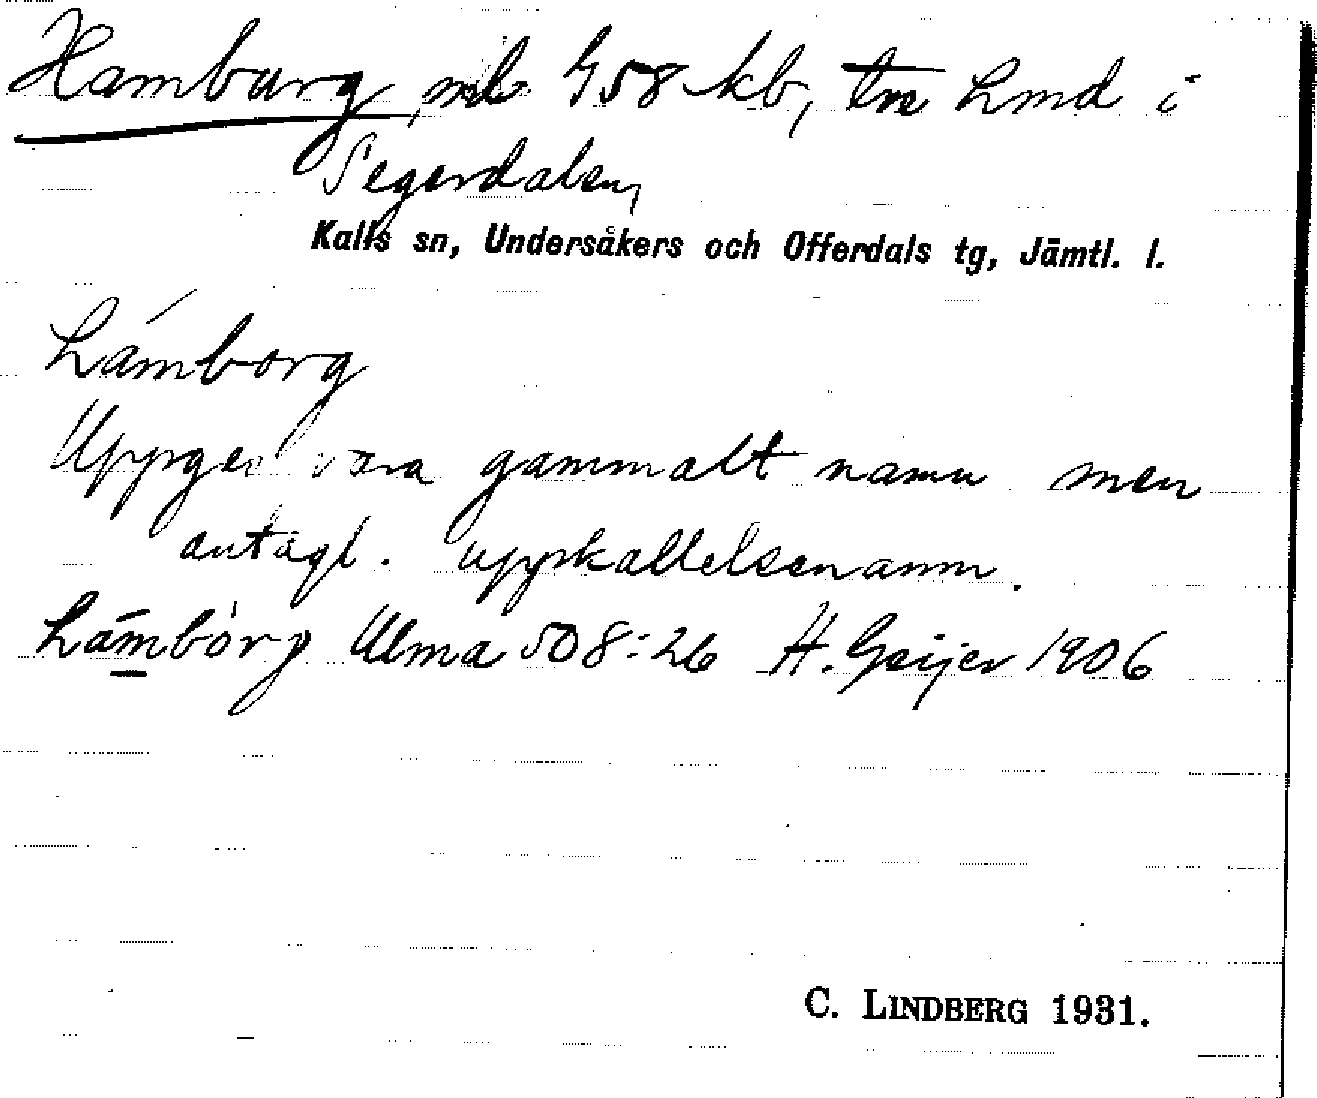 Hamburg, mb 958 kb, tre hmd i
Segerdalen,
Kalls sn, Undersåkers och Offerdals tg, Jämtl. l.
hámborg
Uppges vara gammalt namn men
antagl. uppkallelsenamn.
hámbòrg Ulma 508:26 H. Geijer 1906
C. LINDBERG 1931.